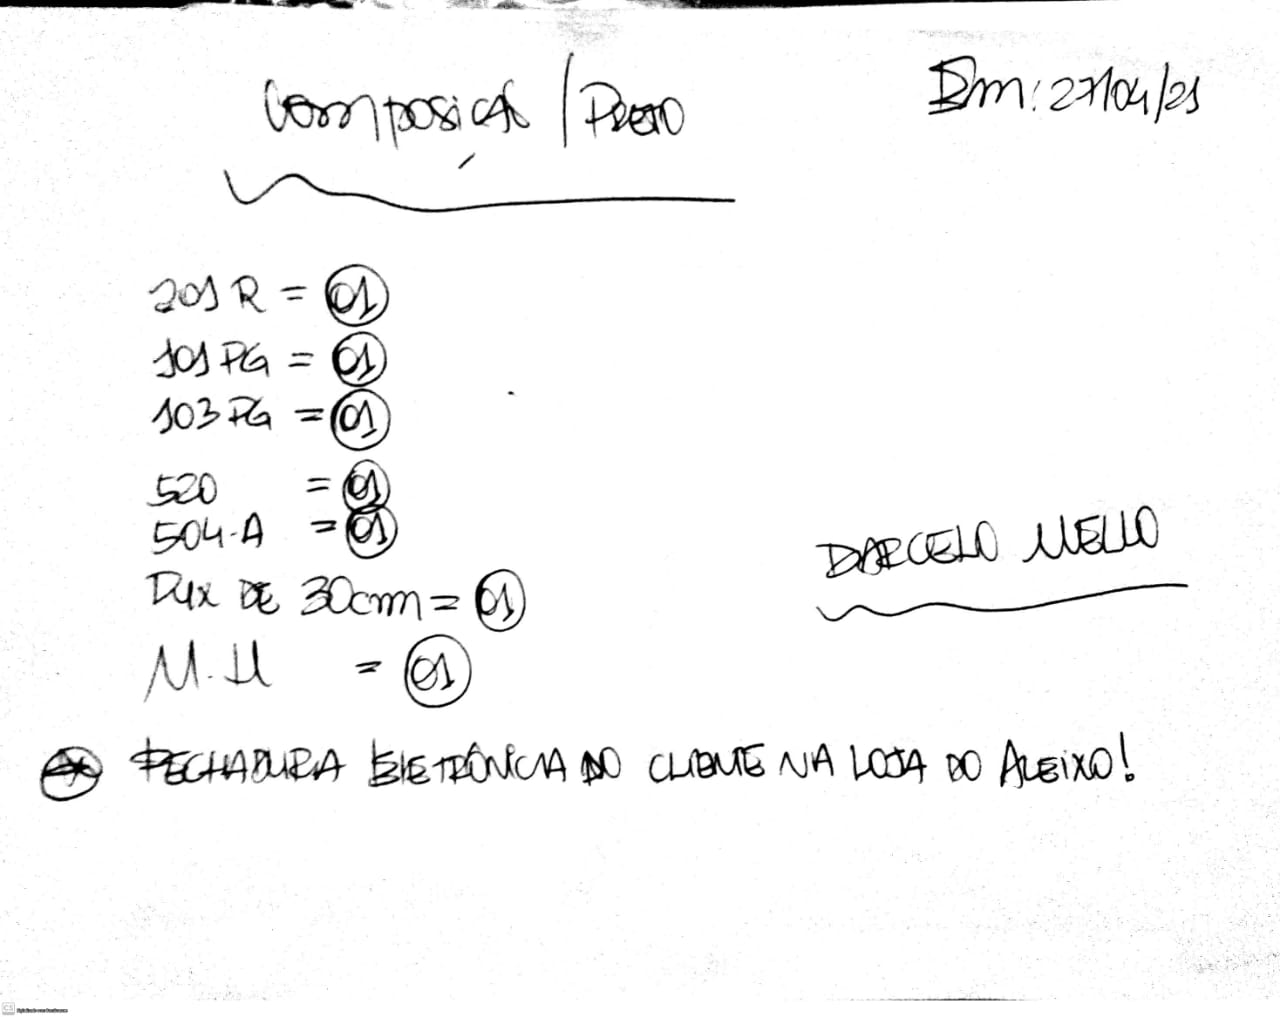 Composição / Preto
Em: 27/04/21
201 R = 01
101 PG = 01
103 PG = 01
520 = 01
504-A = 01
Pux DE 30cm = 01
M.H = 01
DARCELO MELLO
* FECHADURA ELETRÔNICA DO CLIENTE NA LOJA DO ALEIXO!
CS